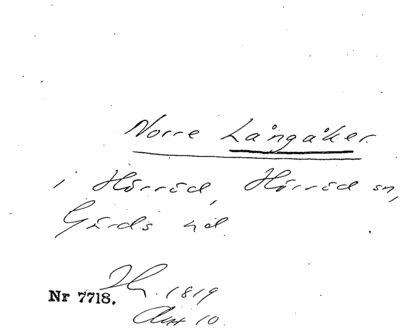 Norre Långåker
i Hörröd, Hörröd sn,
Gärds hd
Nr 7718.
1819
10